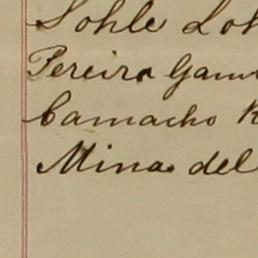 Sohle Loh
Pereira Gam
Camacho R
Minas del